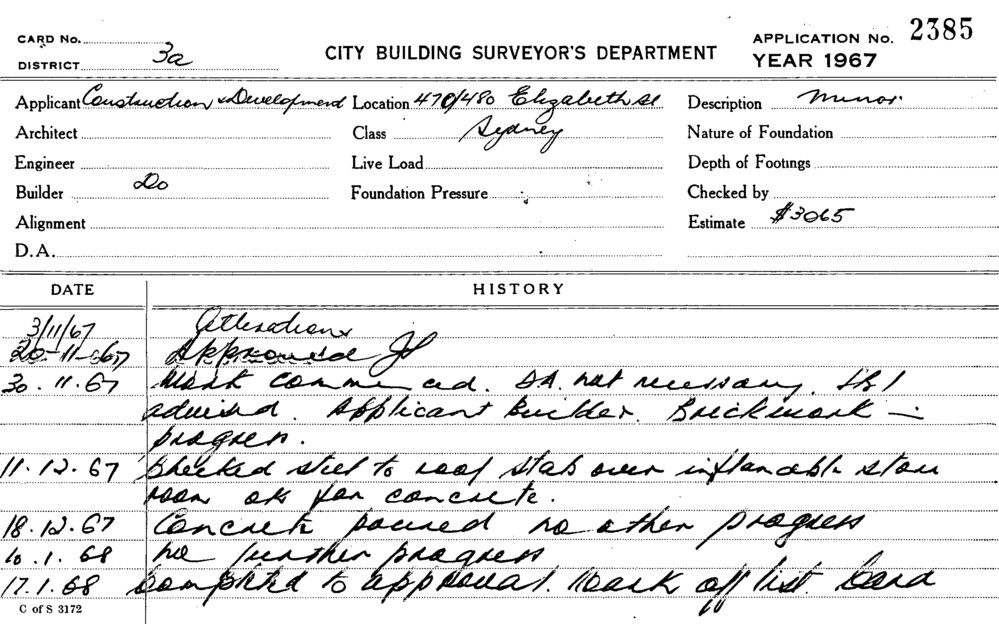 CARD No.
DISTRICT 3a
CITY BUILDING SURVEYOR'S DEPARTMENT
APPLICATION No. 2385
YEAR 1967
Applicant Construction & Development Location 470/480 Elizabeth St Description minor
Architect Class Sydney Nature of Foundation
Engineer Live Load Depth of Footings
Builder Do Foundation Pressure Checked by
Alignment Estimate $3065
D.A.
DATE HISTORY
3/11/67 Alterations
20-11-67 Approved
30.11.67 Work commenced. DA. not necessary.
advised. Applicant builder. Brickwork in
progress.
11.12.67 Checked steel to roof slab over inflamable store
room ok for concrete.
18.12.67 Concrete poured no other progress
10.1.68 no further progress
17.1.68 Completed to approval. Mark off list. Card
C of S 3172